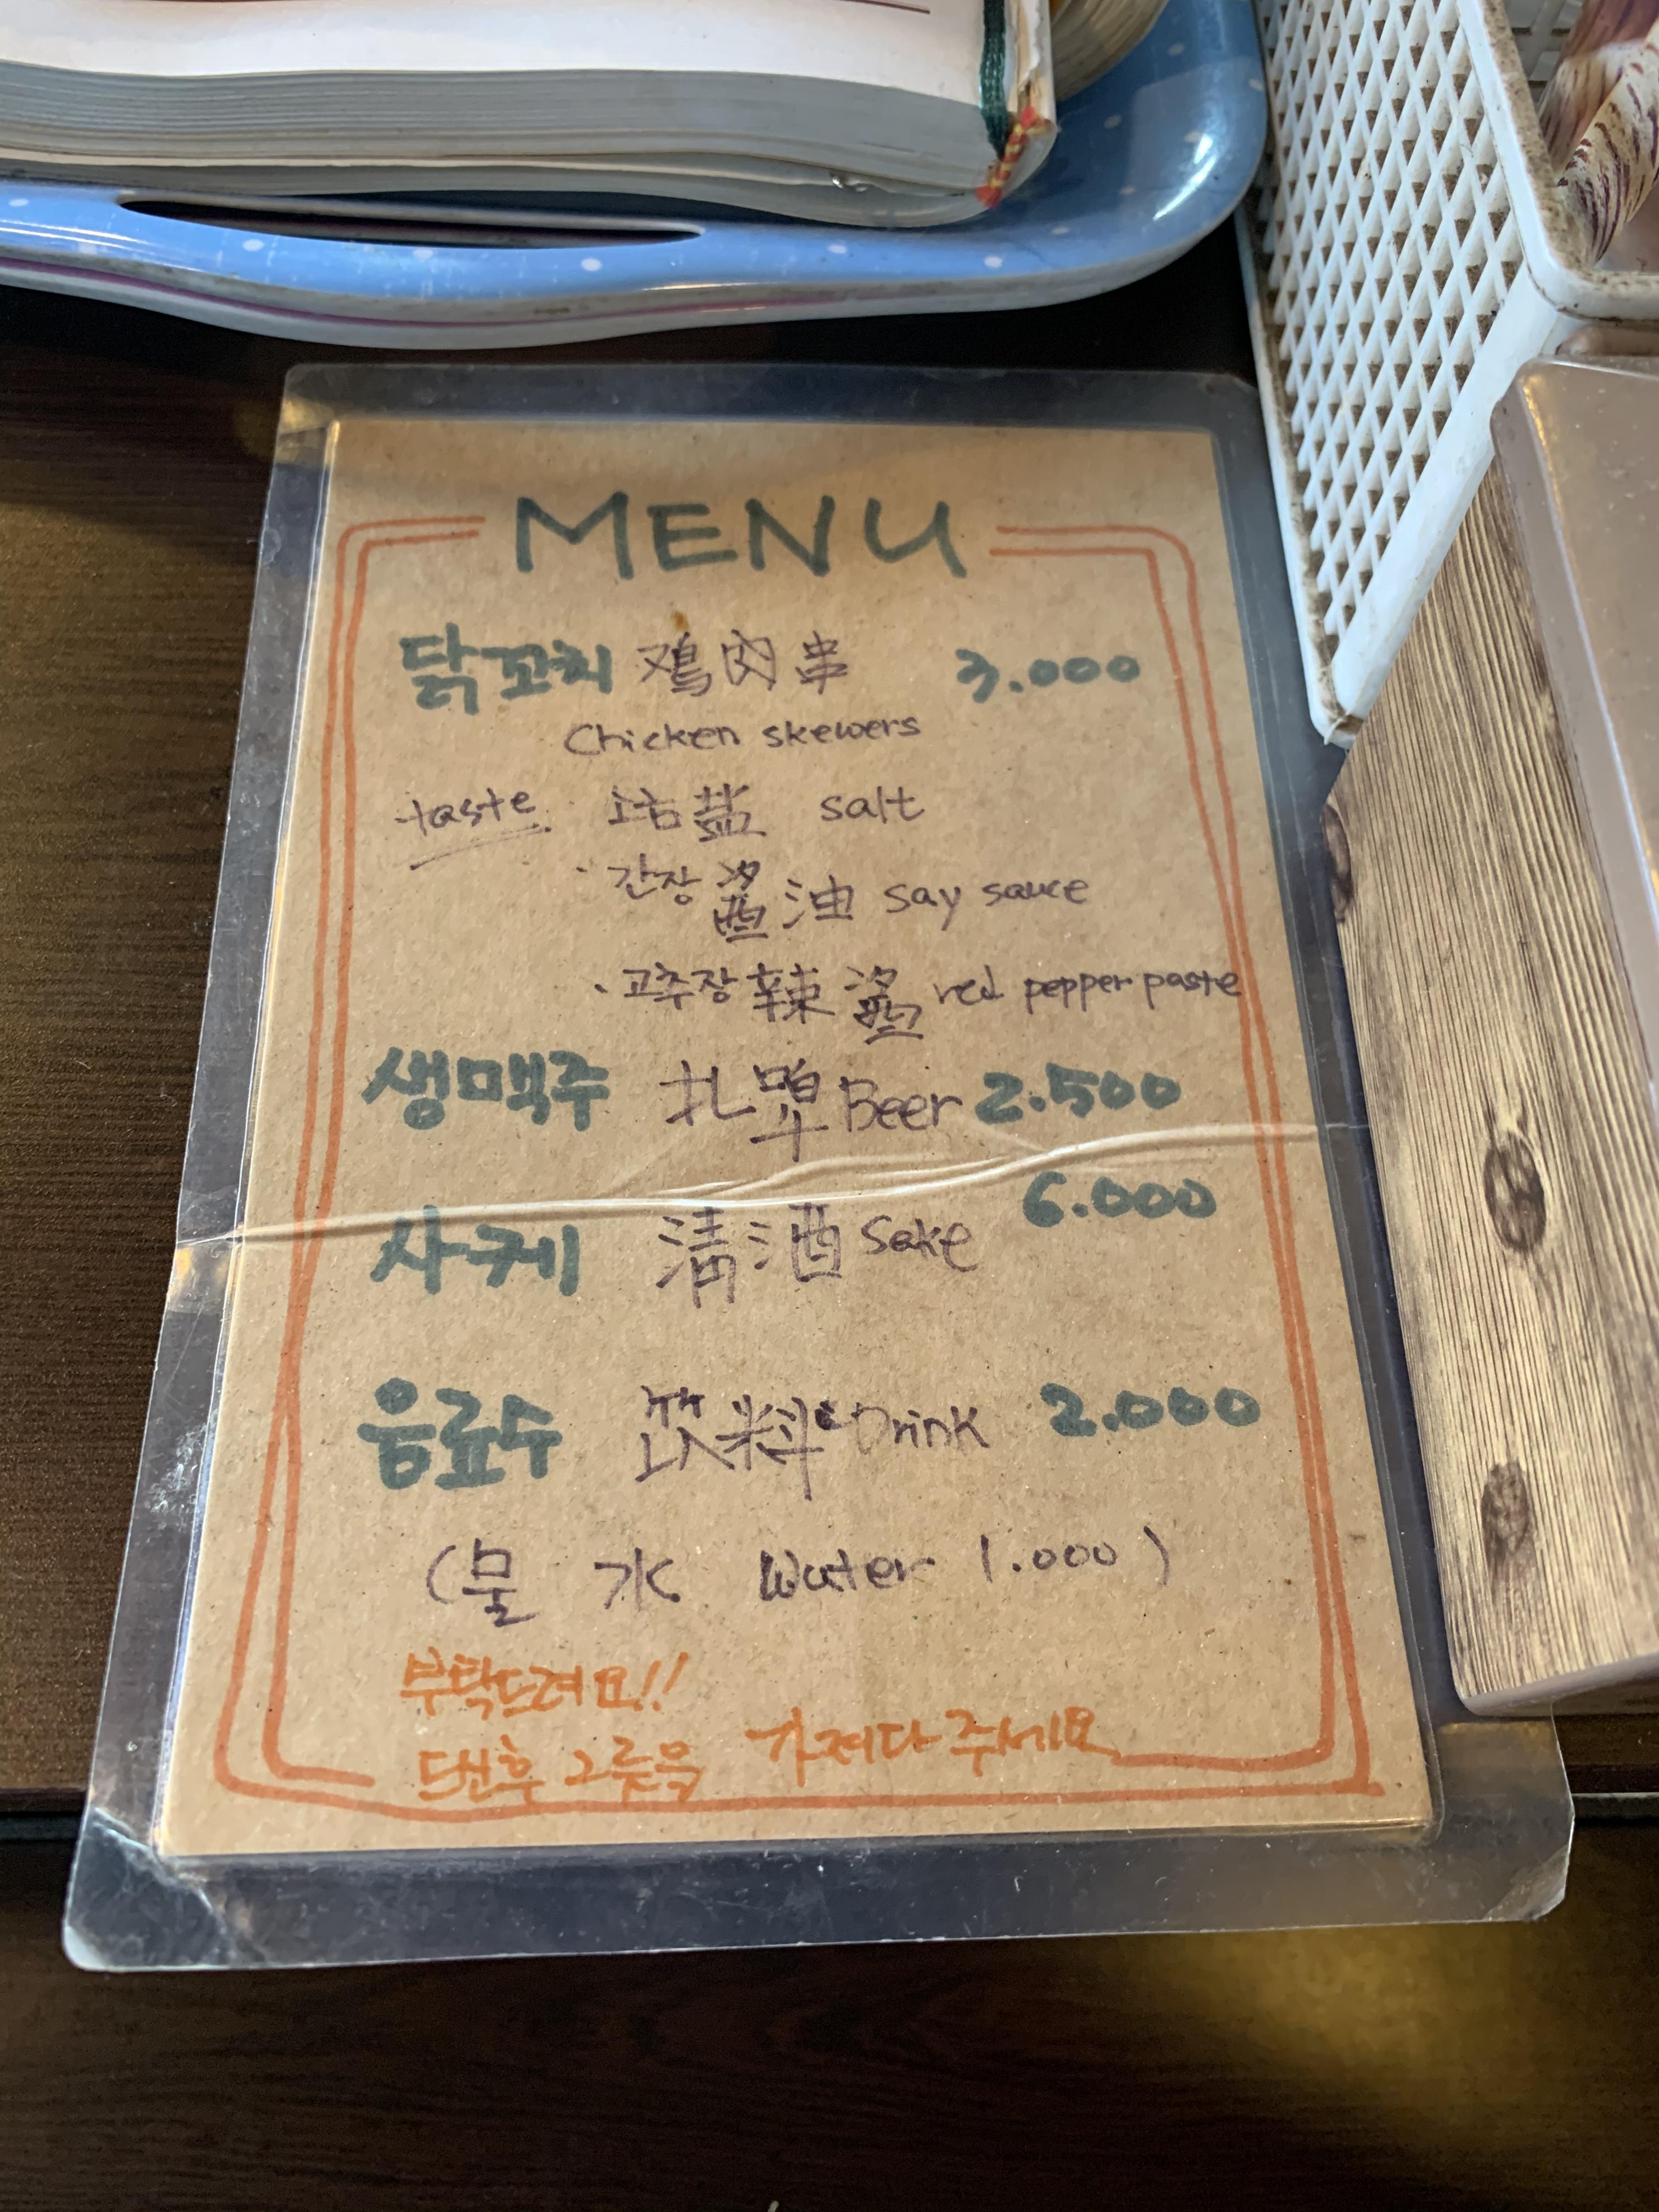 MENU
닭꼬치 鸡肉串 3.000
Chicken skewers
taste · 소금 盐 salt
· 간장 酱油 say sauce
· 고추장 辣酱 red pepper paste
생맥주 扎啤 Beer 2.500
사케 淸酒 Sake 6.000
음료수 飲料 Drink 2.000
(물 水 Water 1.000)
부탁드려요!!
드신후 그릇을 가져다 주세요